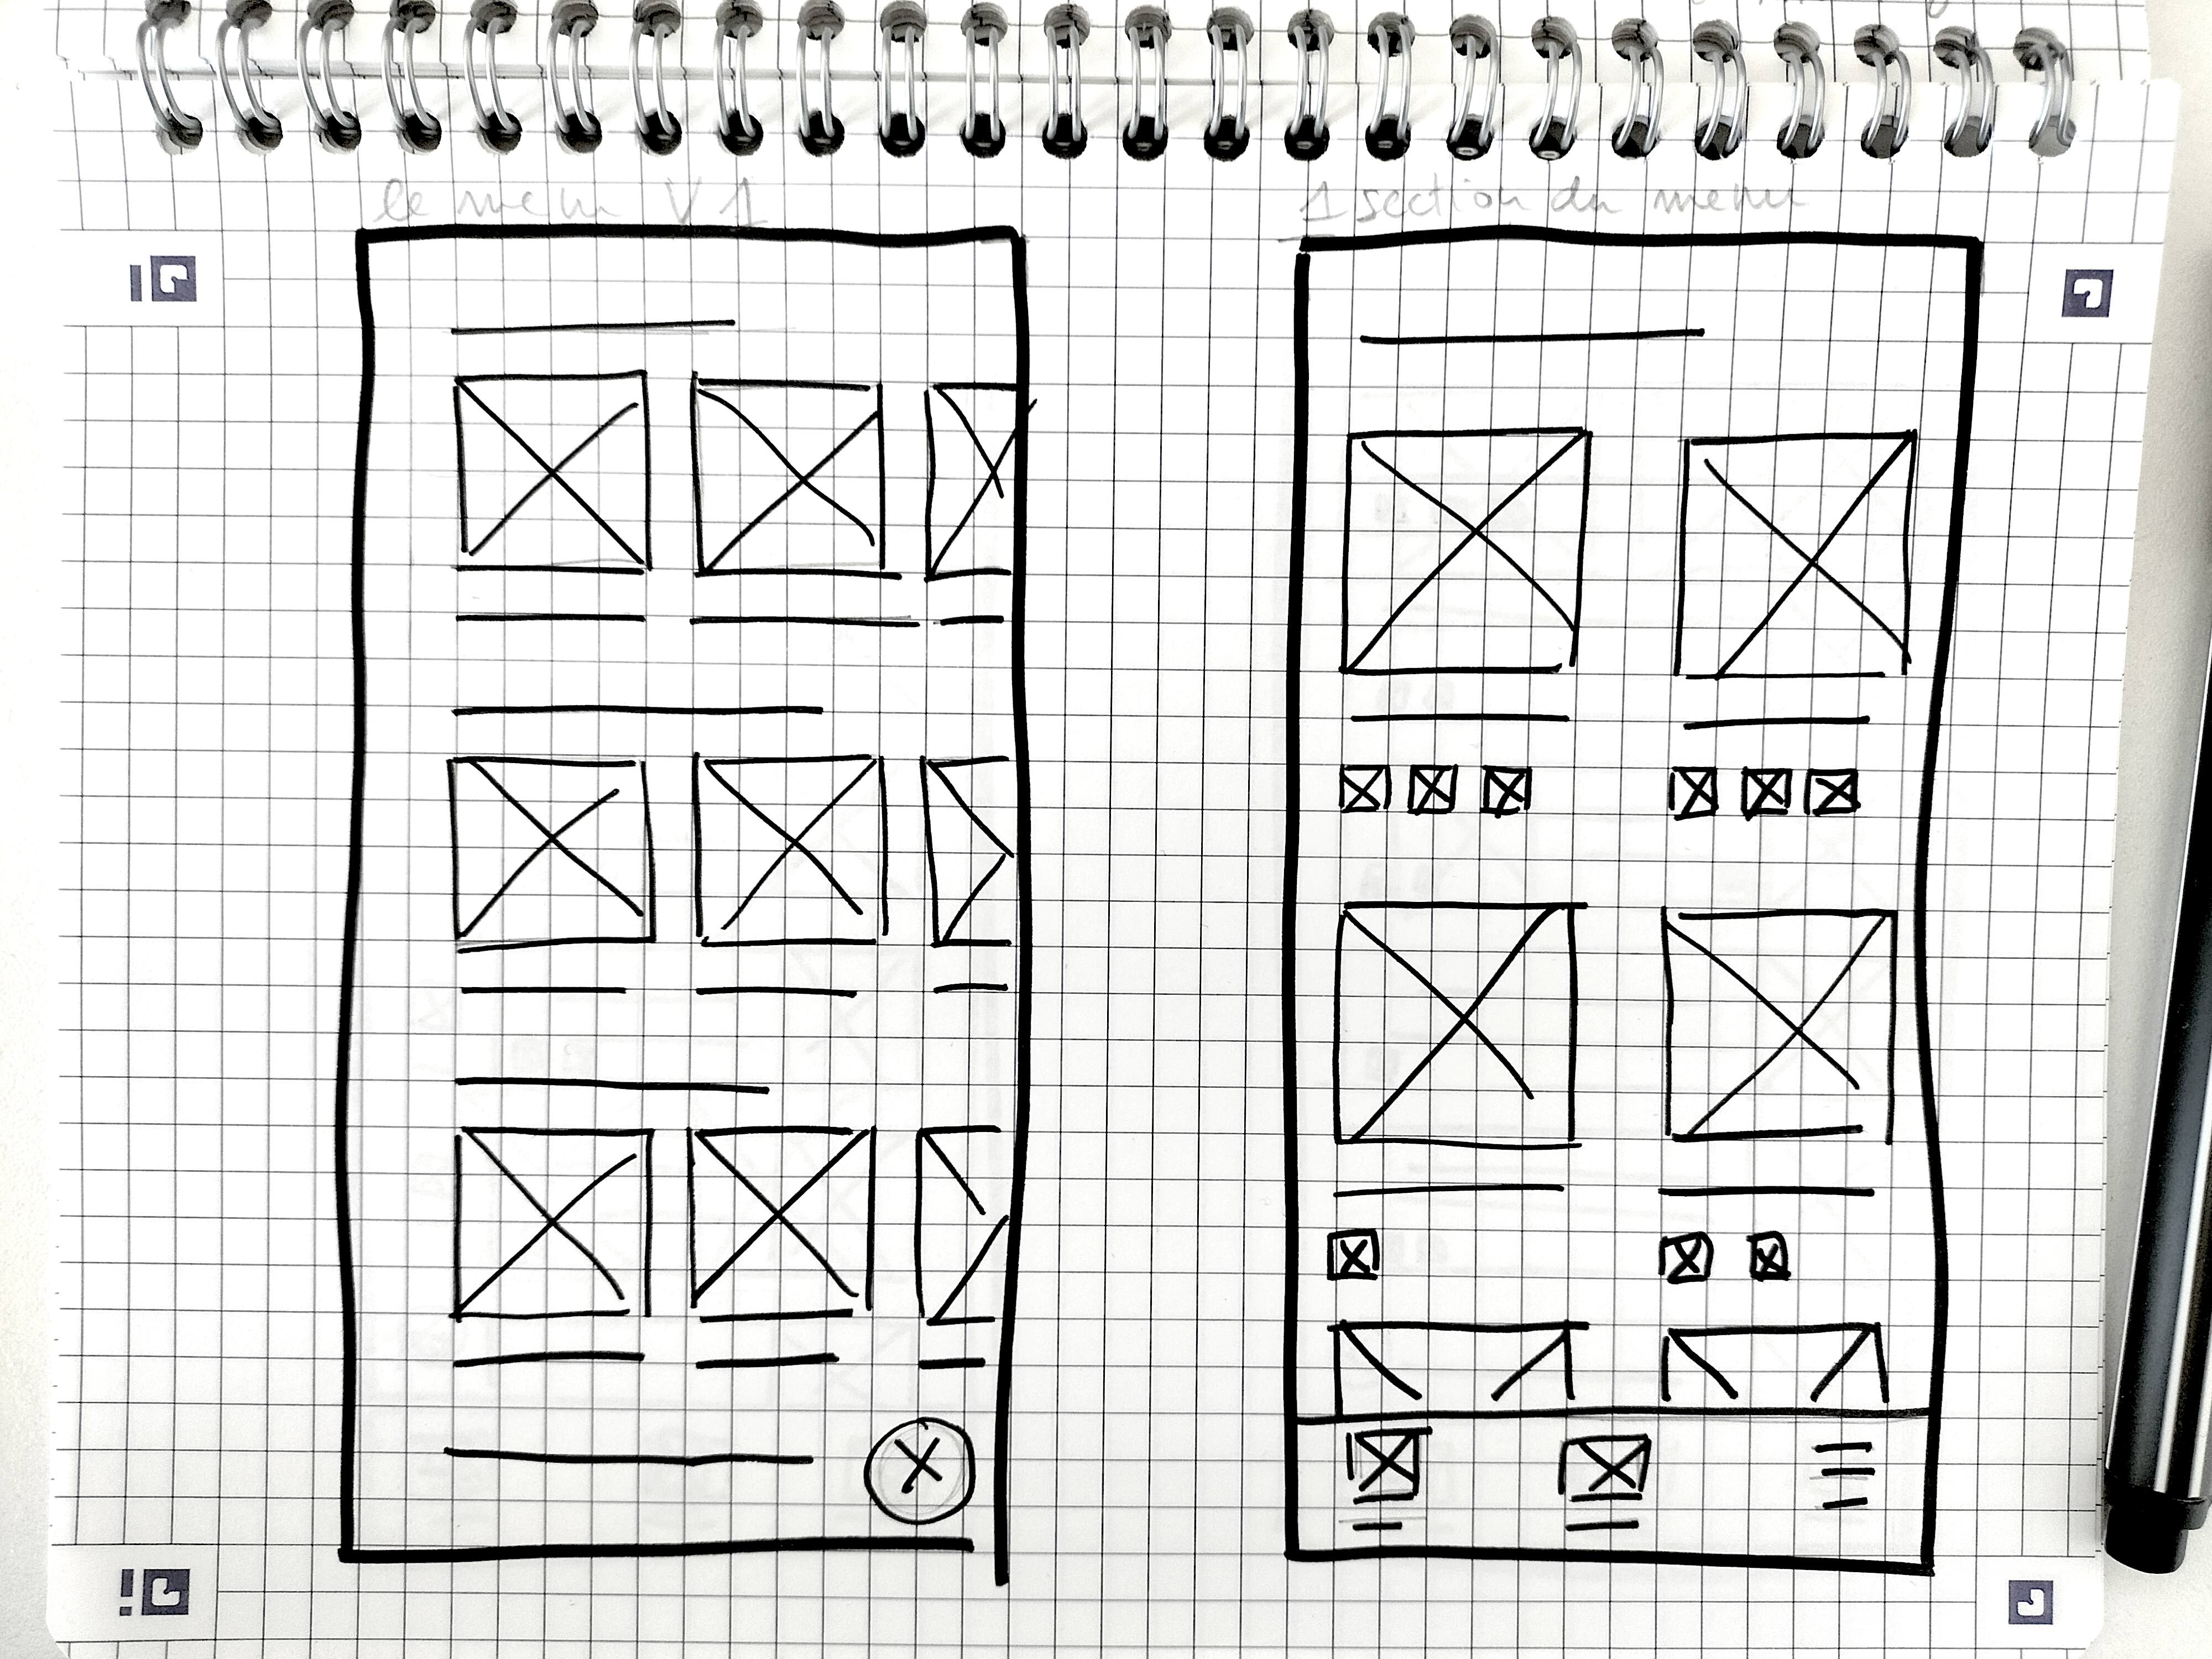 le menu V1
1 section du menu